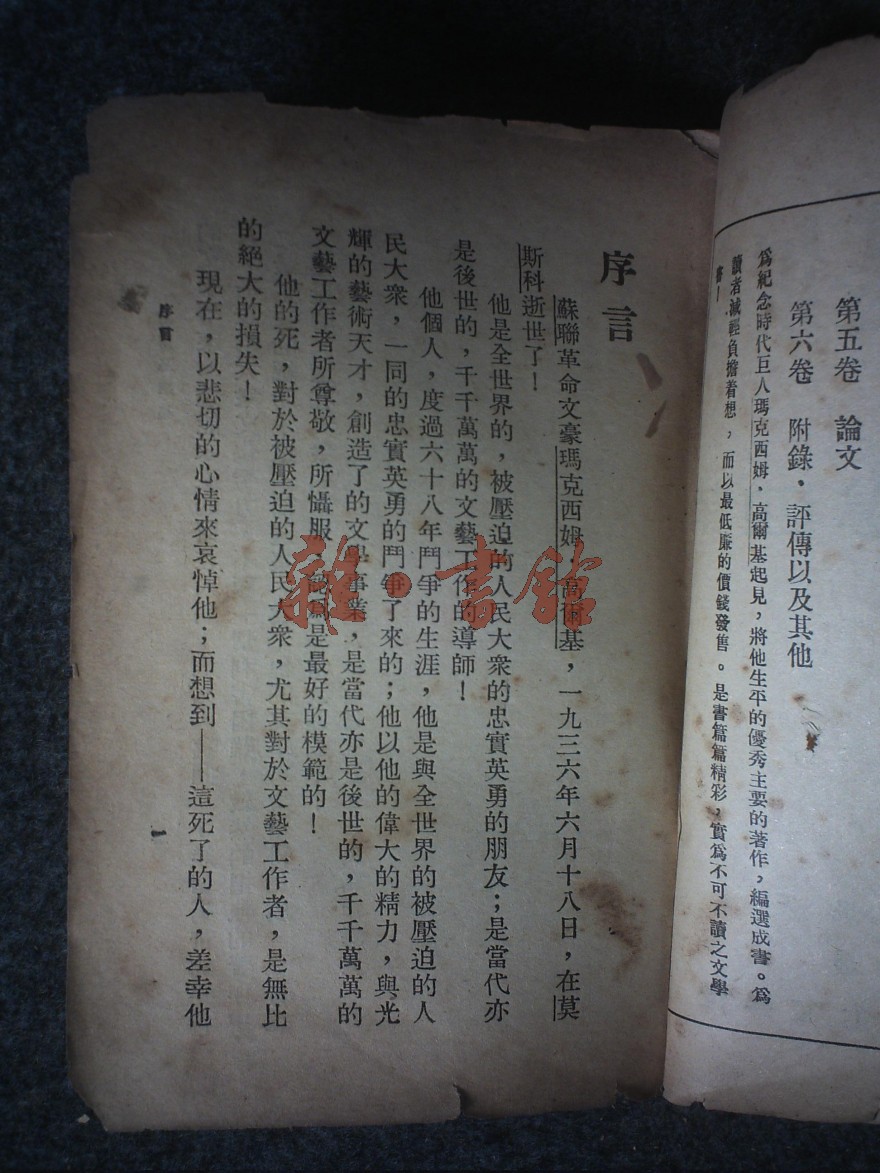 第五卷　論文
第六卷　附錄．評傳以及其他
爲紀念時代巨人瑪克西姆．高爾基起見，將他生平的優秀主要的著作，編選成書。爲
讀者減輕負擔着想，而以最低廉的價錢發售。是書篇篇精彩，實爲不可不讀之文學
書！
序言
蘇聯革命文豪瑪克西姆．高爾基，一九三六年六月十八日，在莫
斯科逝世了！
他是全世界的，被壓迫的人民大衆的忠實英勇的朋友；是當代亦
是後世的，千千萬萬的文藝工作的導師！
他個人，度過六十八年鬥爭的生涯，他是與全世界的被壓迫的人
民大衆，一同的忠實英勇的鬥爭了來的；他以他的偉大的精力，與光
輝的藝術天才，創造了的文學事業，是當代亦是後世的，千千萬萬的
文藝工作者所尊敬，所懾服，認爲是最好的模範的！
他的死，對於被壓迫的人民大衆，尤其對於文藝工作者，是無比
的絕大的損失！
現在，以悲切的心情來哀悼他；而想到——這死了的人，差幸他
序言
一
雜·書館